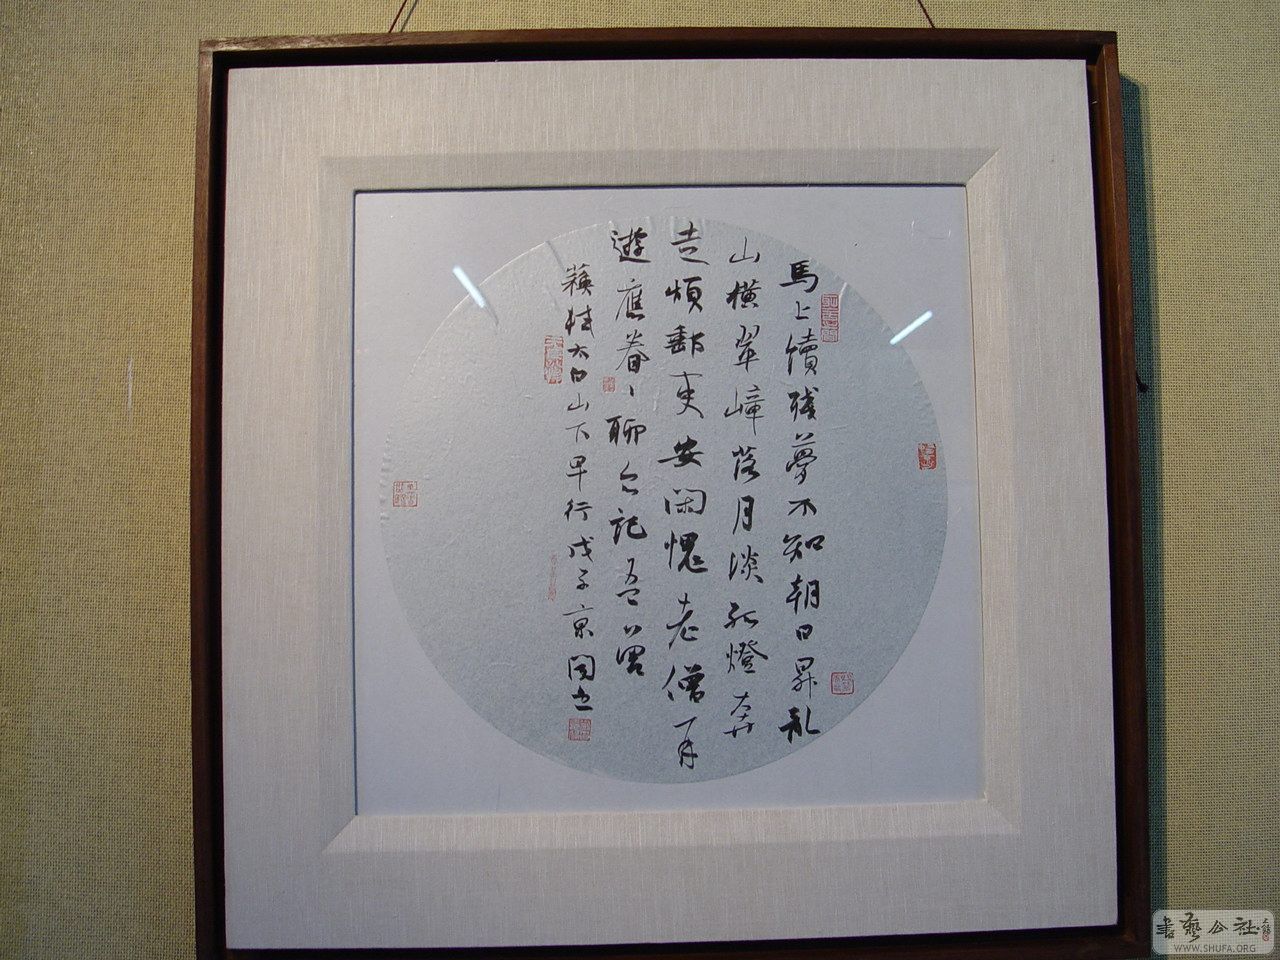 馬上續殘夢不知朝日昇亂
山橫翠嶂落月淡孤燈奔
走煩郵吏安閑愧老僧再
遊應眷〻聊亦記吾曾
蘇軾太白山下早行戊子京
書藝公社
WWW.SHUFA.ORG